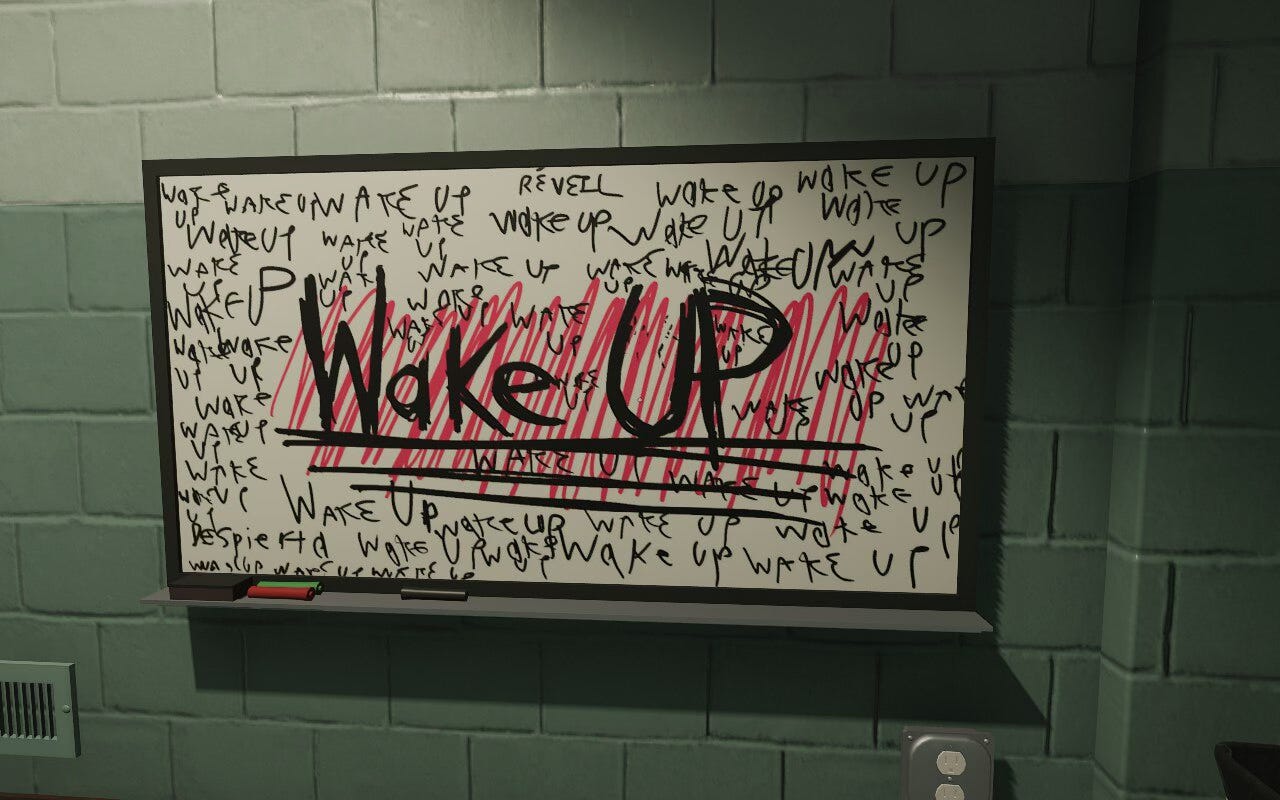 Wake UP
WAKEUP
WAKE UP
RÉVEIL
Wake up
WAKE UP
WakeUP
WAKE UP
WAKE UP
Wake up
Wake UP
WAKE UP
WAKE UP
WAKE UP
WAKE UP
WAKE UP
WAKE UP
WAKE UP
WAKE UP
WAKE UP
Wake UP
Wake UP
WAKE UP
Wake UP
Wake UP
Wake UP
WAKE UP
WAKE UP
WAKE UP
WAKE UP
Wake up
WAKE UP
wakeup
WAKE UP
Wake UP
Despierta
Wake UP
Wake UP
Wake up
WAKE UP
WAKE UP WAKE UP WAKE UP